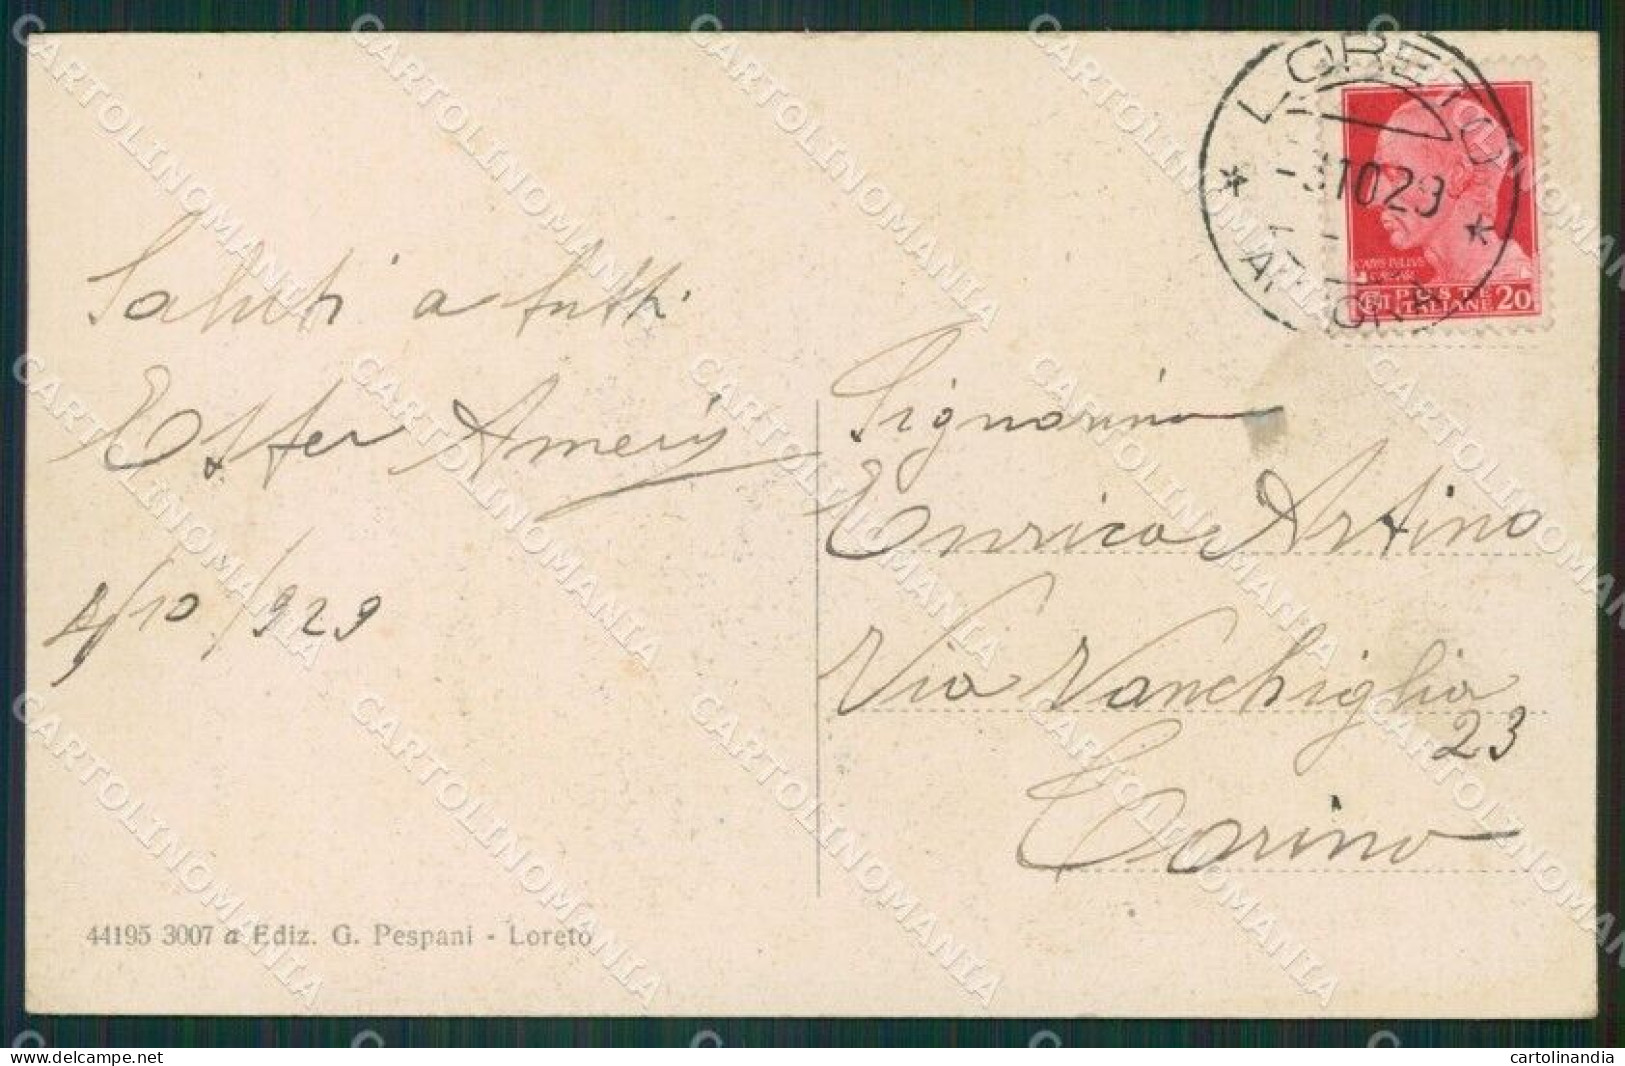 LORETO
-3 10 29
CAIVS IVLIVS
CAESAR
POSTE
ITALIANE 20
Saluti a tutti
Ester
4/10/929
Signorina
Enrica Artino
Via Vanchiglia
23
Torino
44195 3007 a Ediz. G. Pespani - Loreto
CARTOLINOMANIA
www.delcampe.net
cartolinandia